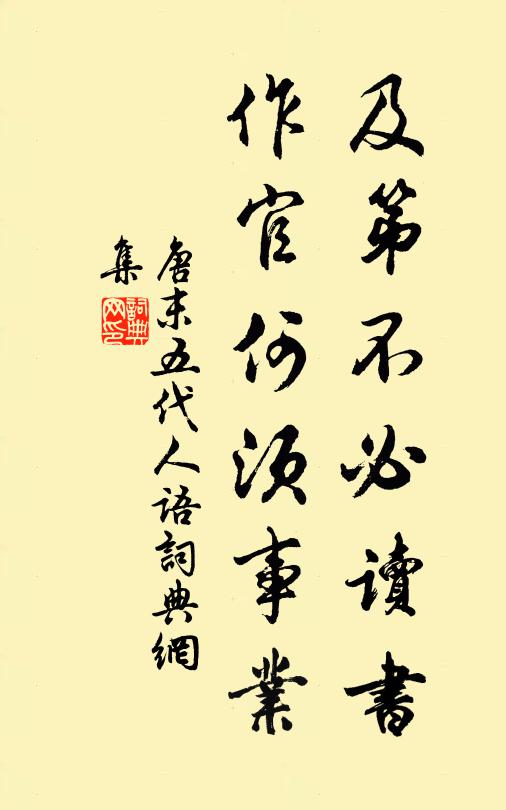 及第不必读書
作官何须事業
唐末五代人语詞典網
集
詞典网印